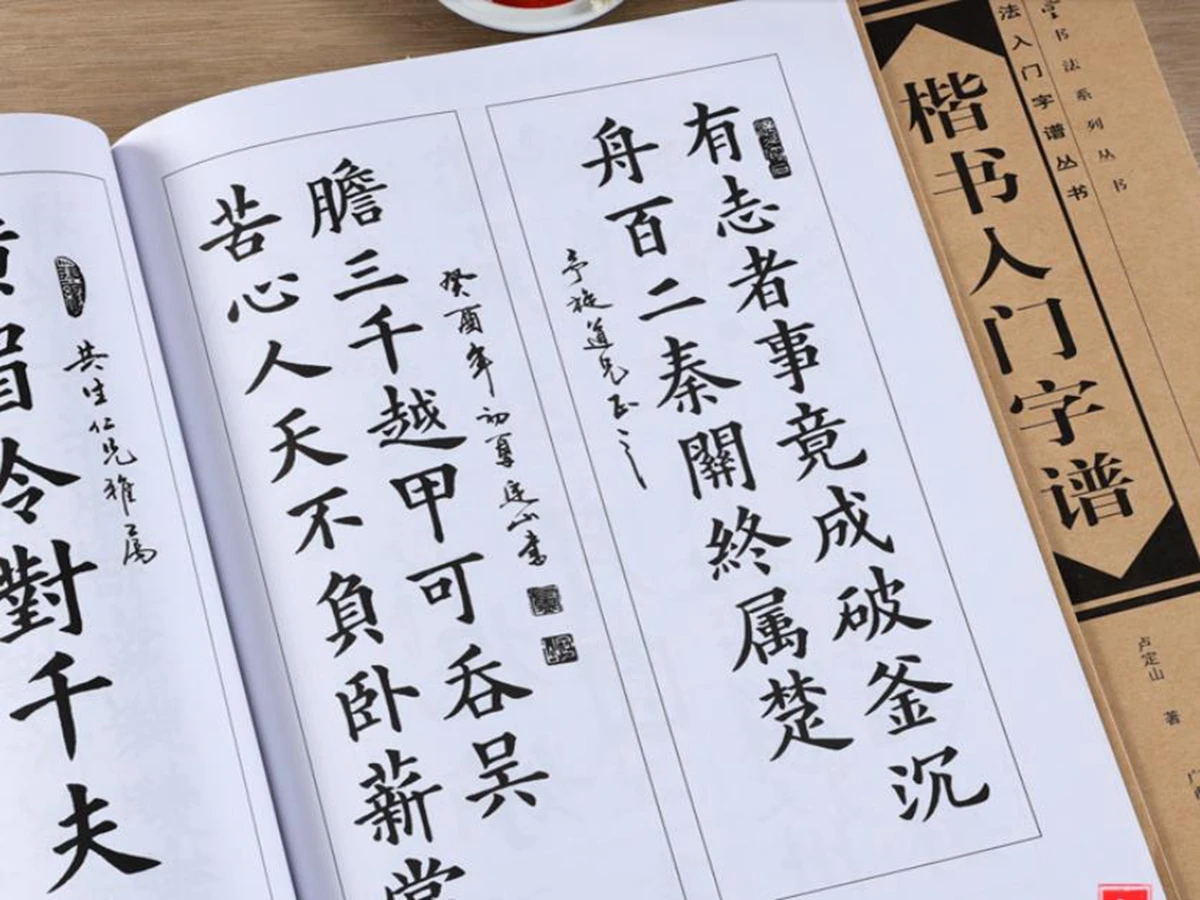 有志者事竟成破釜沉
舟百二秦關終属楚
亭旋道兄正之
苦心人天不負卧薪嘗
膽三千越甲可吞吴
癸酉年初夏定山書
眉冷對千夫
共生仁兄雅属
书法系列丛书
法入门字谱丛书
楷书入门字谱
卢定山 著